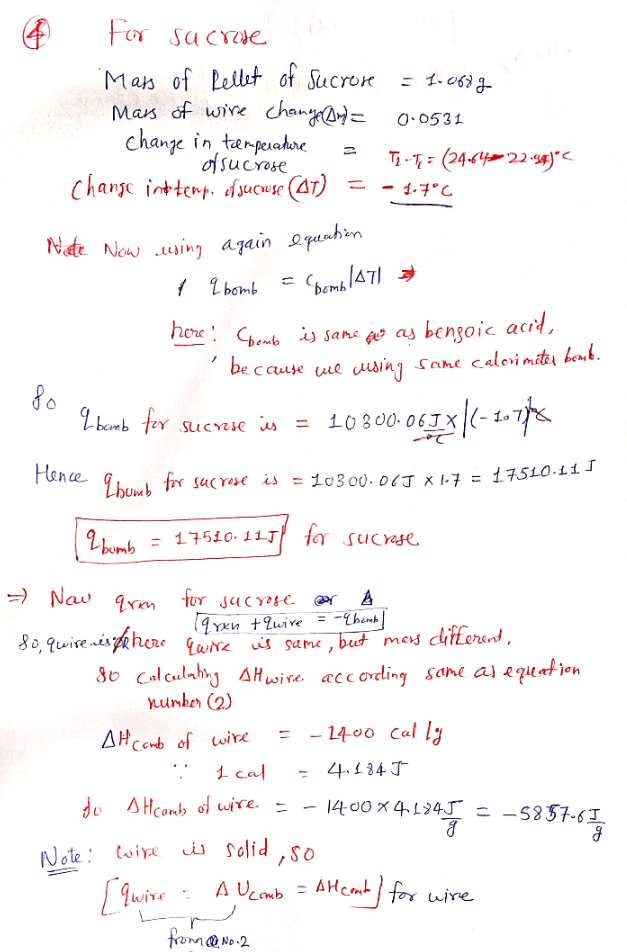 ④ For sucrose
Mass of Pellet of Sucrose = 1.068g
Mass of wire change(Δm) = 0.0531
change in temperature of sucrose = T₂-T₁ = (24.64-22.94)°C
Change in temp. of sucrose (ΔT) = - 1.7°C
Note Now using again equation
q bomb = Cbomb |ΔT| ⇒
here: Cbomb is same as benzoic acid,
because we using same calorimeter bomb.
So
qbomb for sucrose is = 10300.06 J/°C × |(-1.7)|°C
Hence qbomb for sucrose is = 10300.06J × 1.7 = 17510.11 J
qbomb = 17510.11J for sucrose
⇒ Now qrxn for sucrose
qrxn + qwire = -qbomb
So, qwire is here qwire is same, but mass different,
So calculating ΔHwire according same as equation
number (2)
ΔHcomb of wire = - 1400 cal/g
∵ 1 cal = 4.184 J
So ΔHcomb of wire = - 1400 × 4.184 J/g = -5857.6 J/g
Note: wire is solid, so
[qwire = ΔUcomb = ΔHcomb] for wire
from No.2